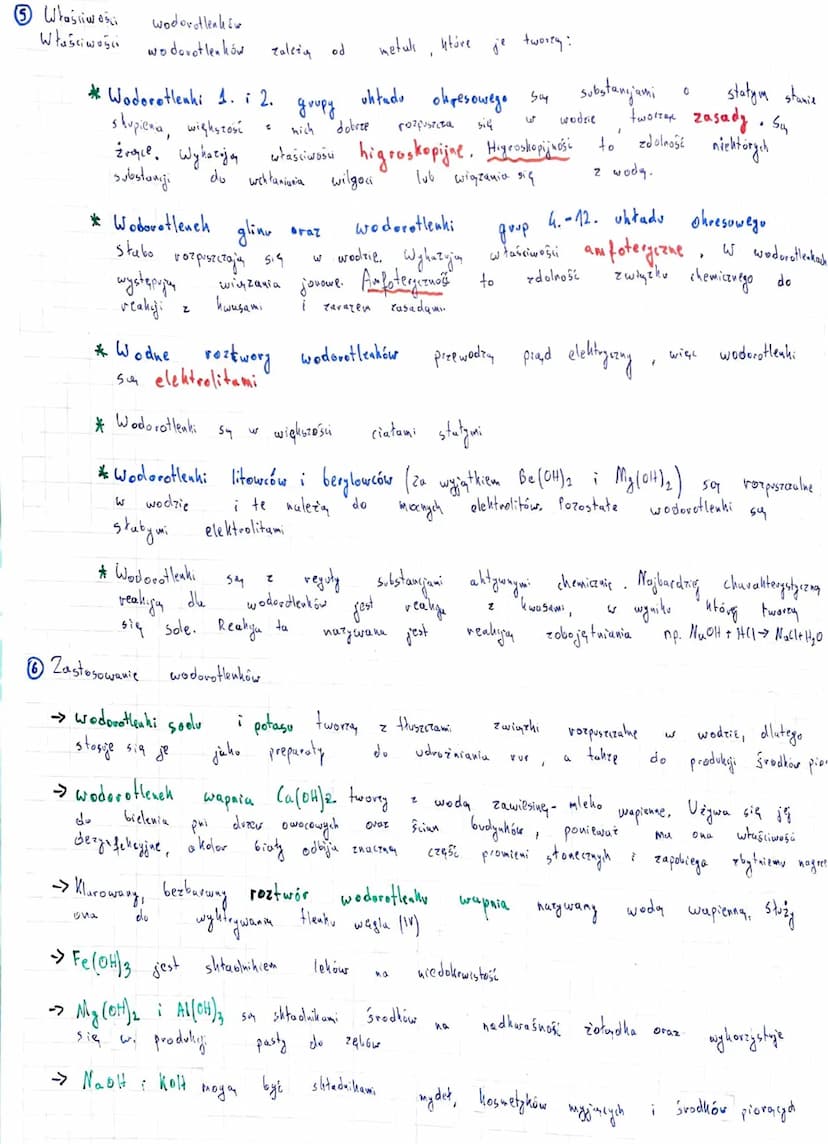 ⑤ Właściwości wodorotlenków
Właściwości wodorotlenków zależą od metali, które je tworzą:
* Wodorotlenki 1. i 2. grupy układu okresowego są substancjami o stałym stanie
skupienia, większość z nich dobrze rozpuszcza się w wodzie, tworząc zasady. Są
żrące. Wykazują właściwości higroskopijne. Higroskopijność to zdolność niektórych
substancji do wchłaniania wilgoci lub wiązania się z wodą.
* Wodorotlenek glinu oraz wodorotlenki grup 4.-12. układu okresowego
słabo rozpuszczają się w wodzie. Wykazują właściwości amfoteryczne. W wodorotlenkach
występują wiązania jonowe. Amfoteryczność to zdolność związku chemicznego do
reakcji z kwasami i zarazem zasadami
* Wodne roztwory wodorotlenków przewodzą prąd elektryczny, więc wodorotlenki
są elektrolitami
* Wodorotlenki są w większości ciałami stałymi
* Wodorotlenki litowców i berylowców (za wyjątkiem Be(OH)2 i Mg(OH)2) są rozpuszczalne
w wodzie i te należą do mocnych elektrolitów. Pozostałe wodorotlenki są
słabymi elektrolitami
* Wodorotlenki są z reguły substancjami aktywnymi chemicznie. Najbardziej charakterystyczną
reakcją dla wodorotlenków jest reakcja z kwasami, w wyniku której tworzą
się sole. Reakcja ta nazywana jest reakcją zobojętniania np. NaOH + HCl → NaCl + H2O
⑥ Zastosowanie wodorotlenków
→ wodorotlenki sodu i potasu tworzą z tłuszczami związki rozpuszczalne w wodzie, dlatego
stosuje się je jako preparaty do udrożniania rur, a także do produkcji środków pior
→ wodorotlenek wapnia Ca(OH)2 tworzy z wodą zawiesinę - mleko wapienne. Używa się jej
do bielenia pni drzew owocowych oraz ścian budynków, ponieważ ma ona właściwości
dezynfekcyjne, a kolor biały odbija znaczną część promieni słonecznych i zapobiega zbytniemu nagrze
→ Klarowany, bezbarwny roztwór wodorotlenku wapnia nazywamy wodą wapienną. Służy
ona do wykrywania tlenku węgla (IV)
→ Fe(OH)3 jest składnikiem leków na niedokrwistość
→ Mg(OH)2 i Al(OH)3 są składnikami środków na nadkwaśność żołądka oraz wykorzystuje
się w produkcji pasty do zębów
→ NaOH i KOH mogą być składnikami mydeł, kosmetyków myjących i środków piorących